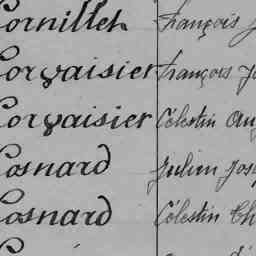 Cornillet François
Corvaisier François
Corvaisier Célestin
Cosnard Julien
Cosnard Célestin